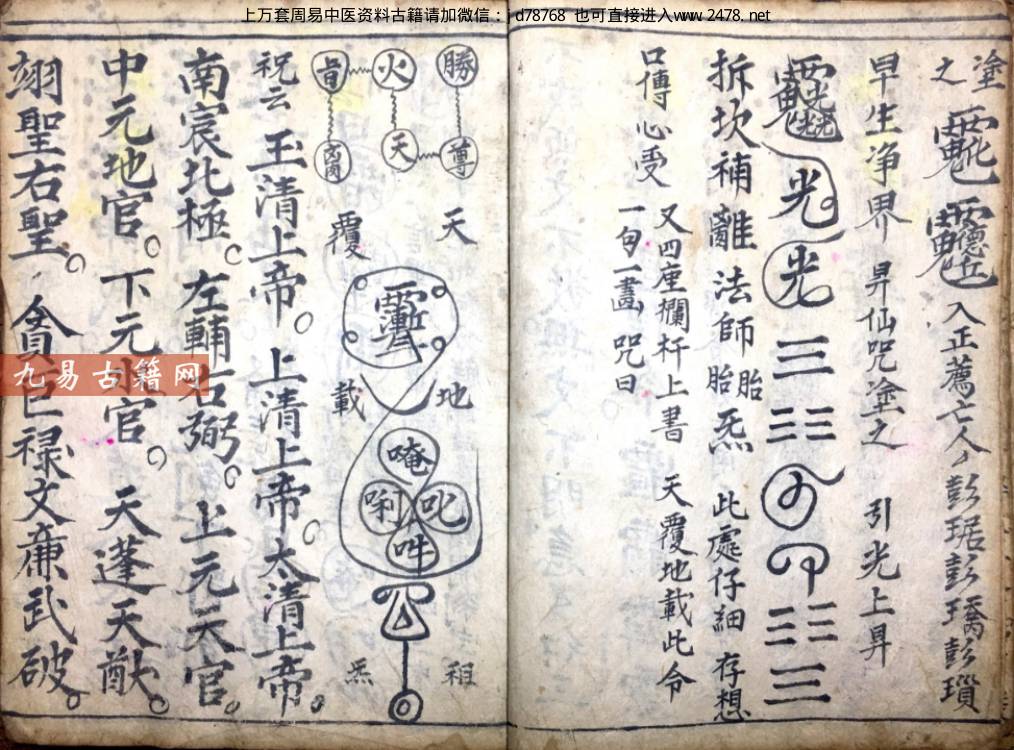 上万套周易中医资料古籍请加微信：jd78768 也可直接进入www.2478.net
塗之
入正薦亡人彭琚彭瑀彭瓆
早生净界 昇仙咒塗之 引光上昇
光 光 三
拆坎補離法師胎胎炁 此處仔細存想
又四座攔杆上書 天覆地載此令
口傳心受 一句一畫咒曰
勝 尊 天 火
天覆
地載
唵 吽
祖炁
祝云玉清上帝。上清上帝。太清上帝。
南宸北極。左輔右弼。上元天官。
中元地官。下元水官。天蓬天猷。
翊聖右聖。貪巨禄文廉武破。
九易古籍网